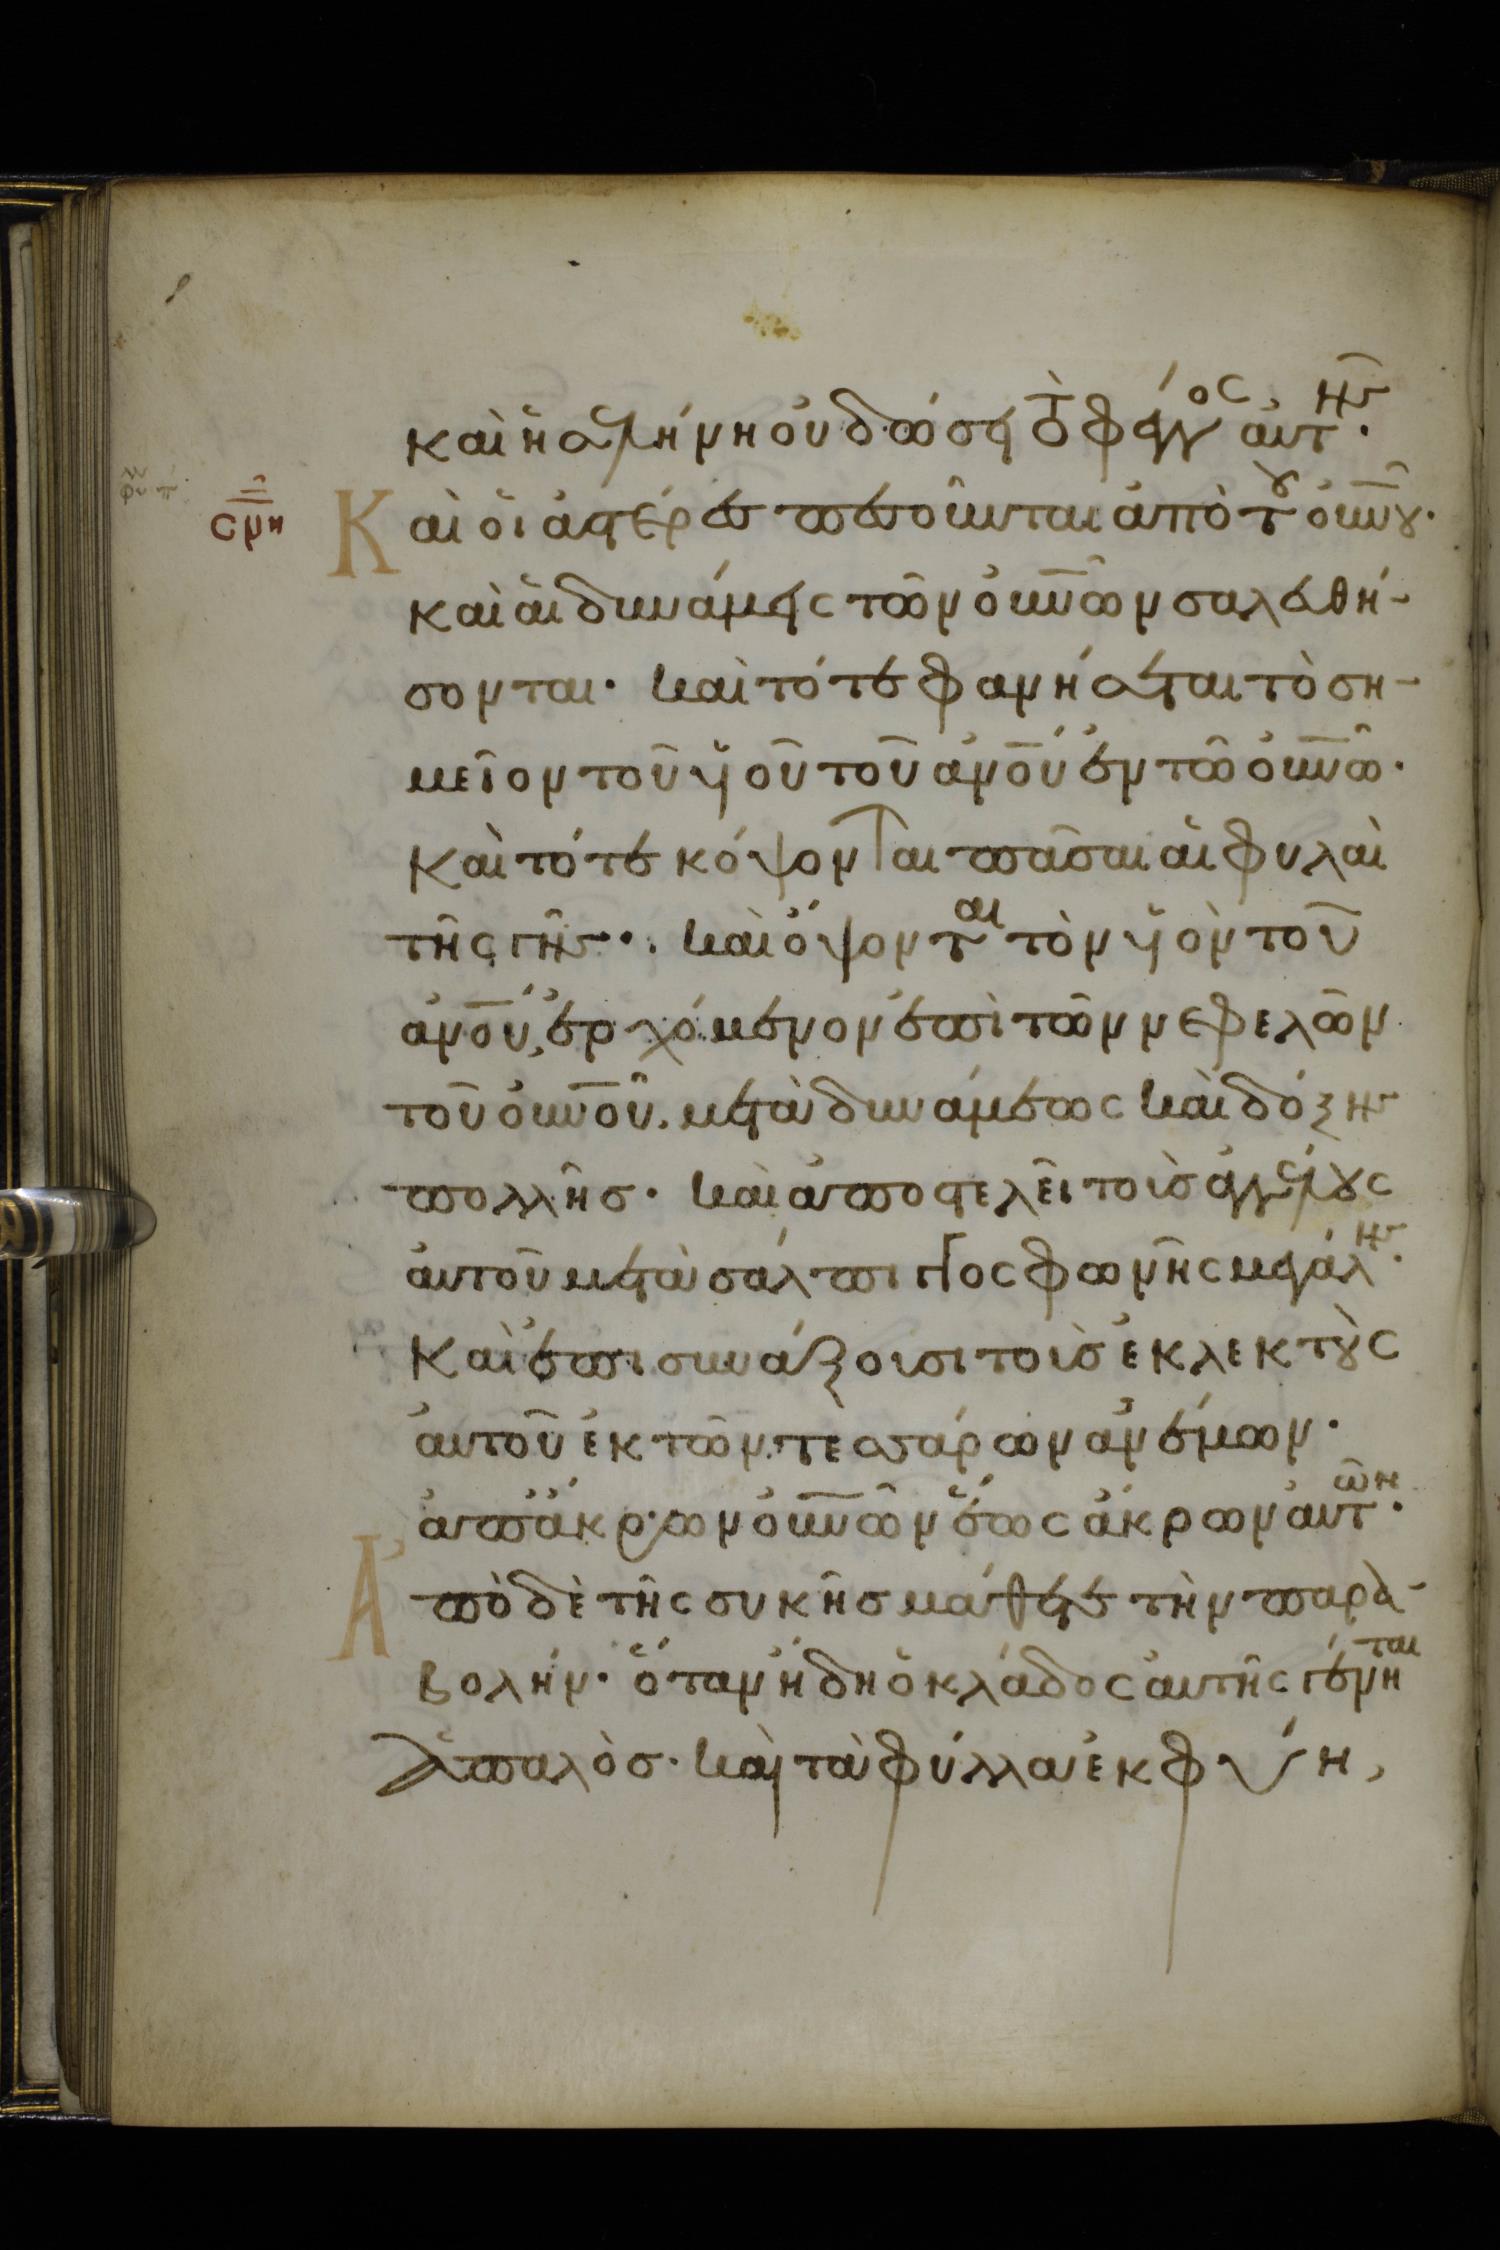 καὶ ἡ σελήνη οὐ δώσει τὸ φέγγος αὐτῆς·
σμη Καὶ οἱ ἀστέρες πεσοῦνται ἀπὸ τοῦ οὐνοῦ·
καὶ αἱ δυνάμεις τῶν οὐνῶν σαλευθή-
σονται· καὶ τότε φανήσεται τὸ ση-
μεῖον τοῦ ὑοῦ τοῦ ἀνοῦ ἐν τῶ οὐνῶ·
καὶ τότε κόψονται πᾶσαι αἱ φυλαὶ
τῆς γῆς· καὶ ὄψονται τὸν ὑὸν τοῦ
ἀνοῦ, ἐρχόμενον ἐπὶ τῶν νεφελῶν
τοῦ οὐνοῦ. μετὰ δυνάμεως καὶ δόξης
πολλῆς· καὶ ἀποστελεῖ τοὺς ἀγγέλους
αὐτοῦ μετὰ σάλπιγγος φωνῆς μεγάλης·
καὶ ἐπισυνάξουσι τοὺς ἐκλεκτοὺς
αὐτοῦ ἐκ τῶν τεσσάρων ἀνέμων·
ἀπ' ἄκρων οὐνῶν ἕως ἄκρων αὐτῶν·
Ἀπὸ δὲ τῆς συκῆς μάθετε τὴν παρα-
βολήν· ὅταν ἤδη ὁ κλάδος αὐτῆς γένηται
ἁπαλὸς· καὶ τὰ φύλλα ἐκφύη,